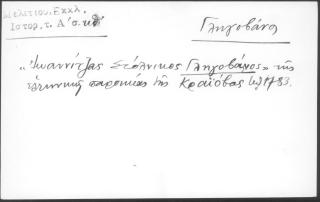 Μελετίου, Εκκλ.
Ιστορ. τ. Α΄ σ. κθ΄
Γληγοβάνος
"Ιωαννίτζας Στόλνικος Γληγοβάνος" της
ελληνικής παροικίας της Κραϊόβας 1783.